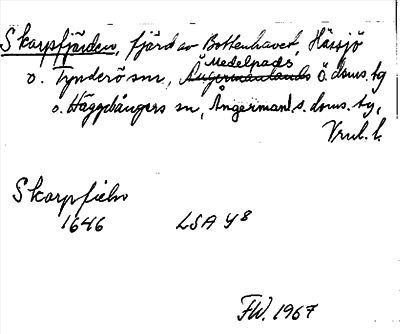 Skarpfjärden, fjärd av Bottenhavet, Hässjö
Medelpads
o. Tynderö snr, Ångermanlands ö. doms. tg
o. Häggdångers sn, Ångermanl. s. doms. tg,
Vnl. l.
Skarpfieln
1646 LSA Y8
FW. 1967